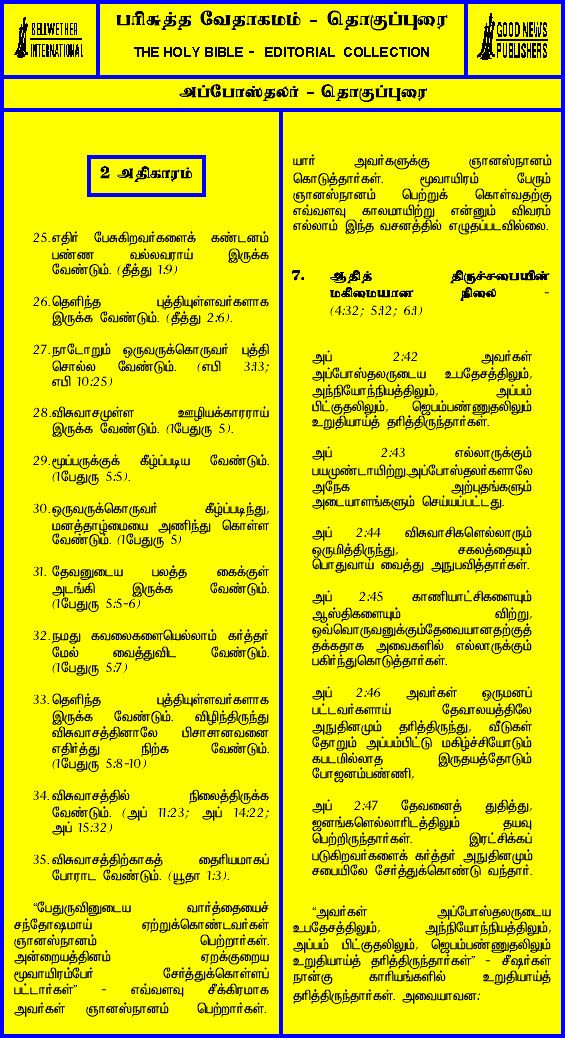 BELLWETHER
INTERNATIONAL
பரிசுத்த வேதாகமம் - தொகுப்புரை
THE HOLY BIBLE - EDITORIAL COLLECTION
GOOD NEWS
PUBLISHERS
அப்போஸ்தலர் - தொகுப்புரை
2 அதிகாரம்
25.எதிர் பேசுகிறவர்களைக் கண்டனம்
பண்ண வல்லவராய் இருக்க
வேண்டும். (தீத்து 1:9)
26.தெளிந்த புத்தியுள்ளவர்களாக
இருக்க வேண்டும். (தீத்து 2:6).
27.நாடோறும் ஒருவருக்கொருவர் புத்தி
சொல்ல வேண்டும். (எபி 3:13;
எபி 10:25)
28.விசுவாசமுள்ள ஊழியக்காரராய்
இருக்க வேண்டும். (1பேதுரு 5).
29.மூப்பருக்குக் கீழ்ப்படிய வேண்டும்.
(1பேதுரு 5:5).
30.ஒருவருக்கொருவர் கீழ்ப்படிந்து,
மனத்தாழ்மையை அணிந்து கொள்ள
வேண்டும். (1பேதுரு 5)
31. தேவனுடைய பலத்த கைக்குள்
அடங்கி இருக்க வேண்டும்.
(1பேதுரு 5:5-6)
32.நமது கவலைகளையெல்லாம் கர்த்தர்
மேல் வைத்துவிட வேண்டும்.
(1பேதுரு 5:7)
33.தெளிந்த புத்தியுள்ளவர்களாக
இருக்க வேண்டும். விழிந்திருந்து
விசுவாசத்தினாலே பிசாசானவனை
எதிர்த்து நிற்க வேண்டும்.
(1பேதுரு 5:8-10)
34.விசுவாசத்தில் நிலைத்திருக்க
வேண்டும். (அப் 11:23; அப் 14:22;
அப் 15:32)
35.விசுவாசத்திற்காகத் தைரியமாகப்
போராட வேண்டும். (யூதா 1:3).
“பேதுருவினுடைய வார்த்தையைச்
சந்தோஷமாய் ஏற்றுக்கொண்டவர்கள்
ஞானஸ்நானம் பெற்றார்கள்.
அன்றையத்தினம் ஏறக்குறைய
மூவாயிரம்பேர் சேர்த்துக்கொள்ளப்
பட்டார்கள்” - எவ்வளவு சீக்கிரமாக
அவர்கள் ஞானஸ்நானம் பெற்றார்கள்.
யார் அவர்களுக்கு ஞானஸ்நானம்
கொடுத்தார்கள். மூவாயிரம் பேரும்
ஞானஸ்நானம் பெற்றுக் கொள்வதற்கு
எவ்வளவு காலமாயிற்று என்னும் விவரம்
எல்லாம் இந்த வசனத்தில் எழுதப்படவில்லை.
7. ஆதித் திருச்சபையின்
மகிமையான நிலை -
(4:32; 5:12; 6:1)
அப் 2:42 அவர்கள்
அப்போஸ்தலருடைய உபதேசத்திலும்,
அந்நியோந்நியத்திலும், அப்பம்
பிட்குதலிலும், ஜெபம்பண்ணுதலிலும்
உறுதியாய்த் தரித்திருந்தார்கள்.
அப் 2:43 எல்லாருக்கும்
பயமுண்டாயிற்று.அப்போஸ்தலர்களாலே
அநேக அற்புதங்களும்
அடையாளங்களும் செய்யப்பட்டது.
அப் 2:44 விசுவாசிகளெல்லாரும்
ஒருமித்திருந்து, சகலத்தையும்
பொதுவாய் வைத்து அநுபவித்தார்கள்.
அப் 2:45 காணியாட்சிகளையும்
ஆஸ்திகளையும் விற்று,
ஒவ்வொருவனுக்கும்தேவையானதற்குத்
தக்கதாக அவைகளில் எல்லாருக்கும்
பகிர்ந்துகொடுத்தார்கள்.
அப் 2:46 அவர்கள் ஒருமனப்
பட்டவர்களாய் தேவாலயத்திலே
அநுதினமும் தரித்திருந்து, வீடுகள்
தோறும் அப்பம்பிட்டு மகிழ்ச்சியோடும்
கபடமில்லாத இருதயத்தோடும்
போஜனம்பண்ணி,
அப் 2:47 தேவனைத் துதித்து,
ஜனங்களெல்லாரிடத்திலும் தயவு
பெற்றிருந்தார்கள். இரட்சிக்கப்
படுகிறவர்களைக் கர்த்தர் அநுதினமும்
சபையிலே சேர்த்துக்கொண்டு வந்தார்.
“அவர்கள் அப்போஸ்தலருடைய
உபதேசத்திலும், அந்நியோந்நியத்திலும்,
அப்பம் பிட்குதலிலும், ஜெபம்பண்ணுதலிலும்
உறுதியாய்த் தரித்திருந்தார்கள்” - சீஷர்கள்
நான்கு காரியங்களில் உறுதியாய்த்
தரித்திருந்தார்கள். அவையாவன: